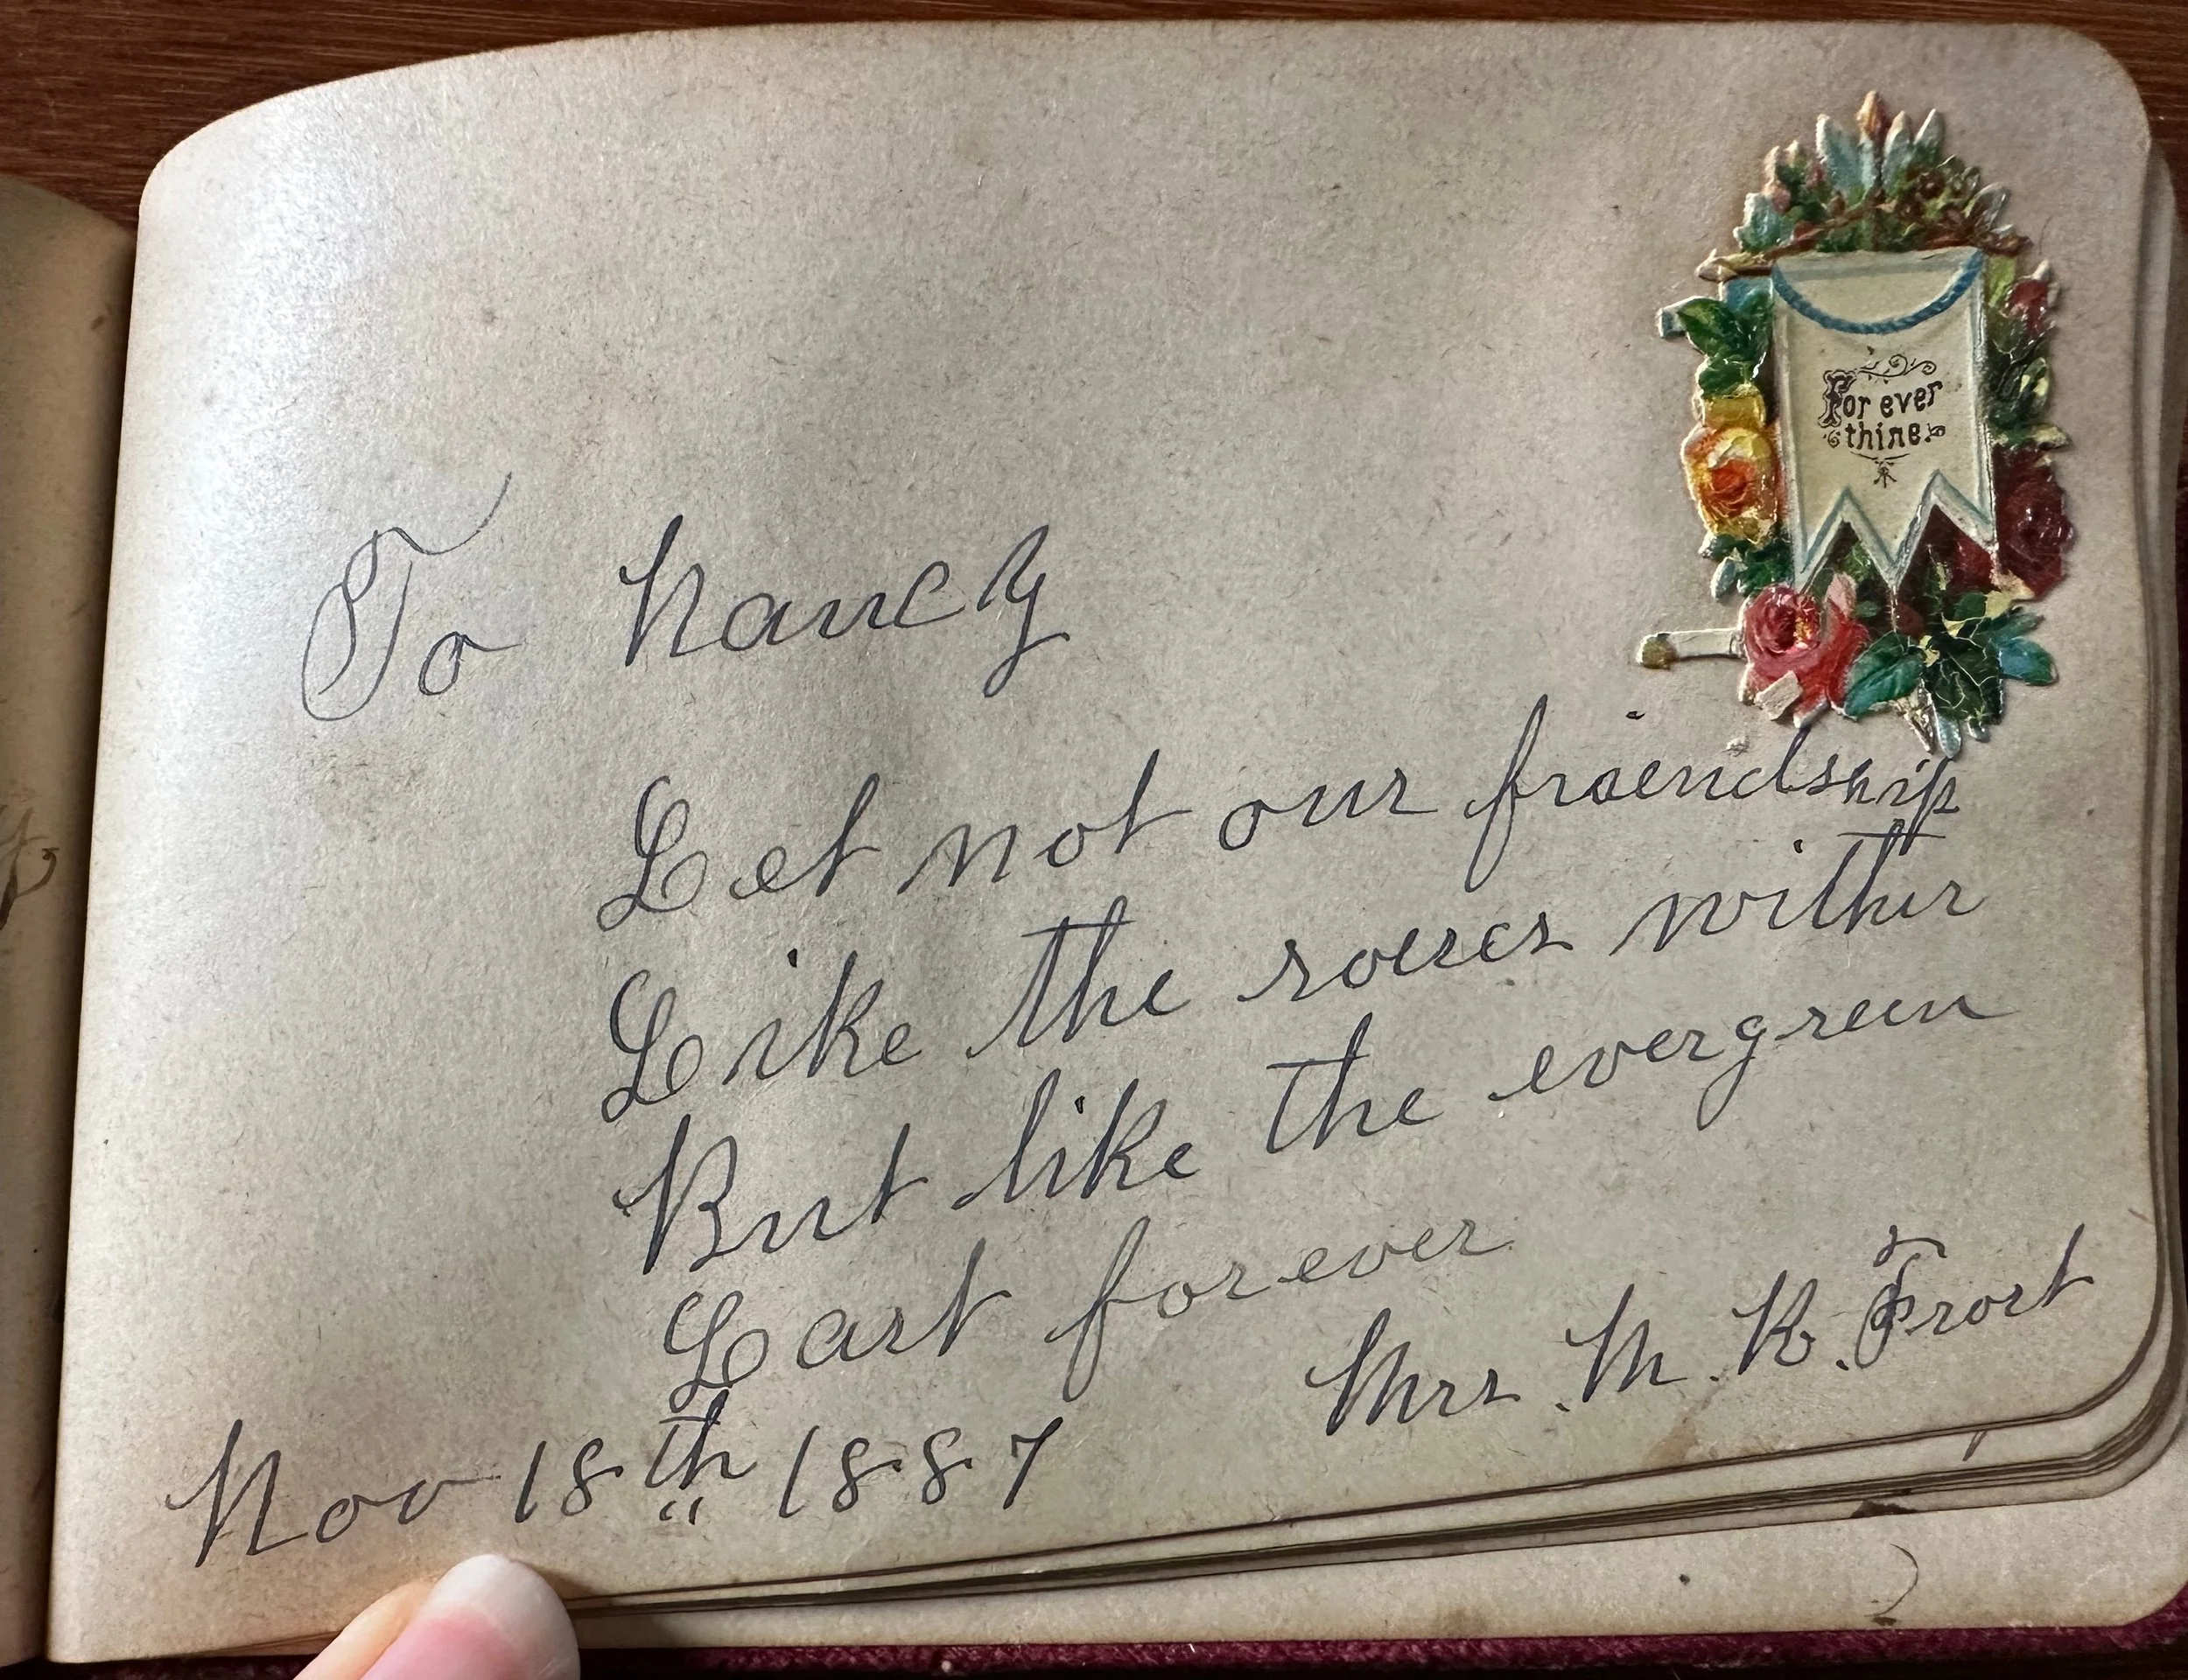 For ever
thine.
To Nancy
Let not our friendship
Like the roses wither
But like the evergreen
Last forever
Mrs. M. R. Frost
Nov 18th 1887